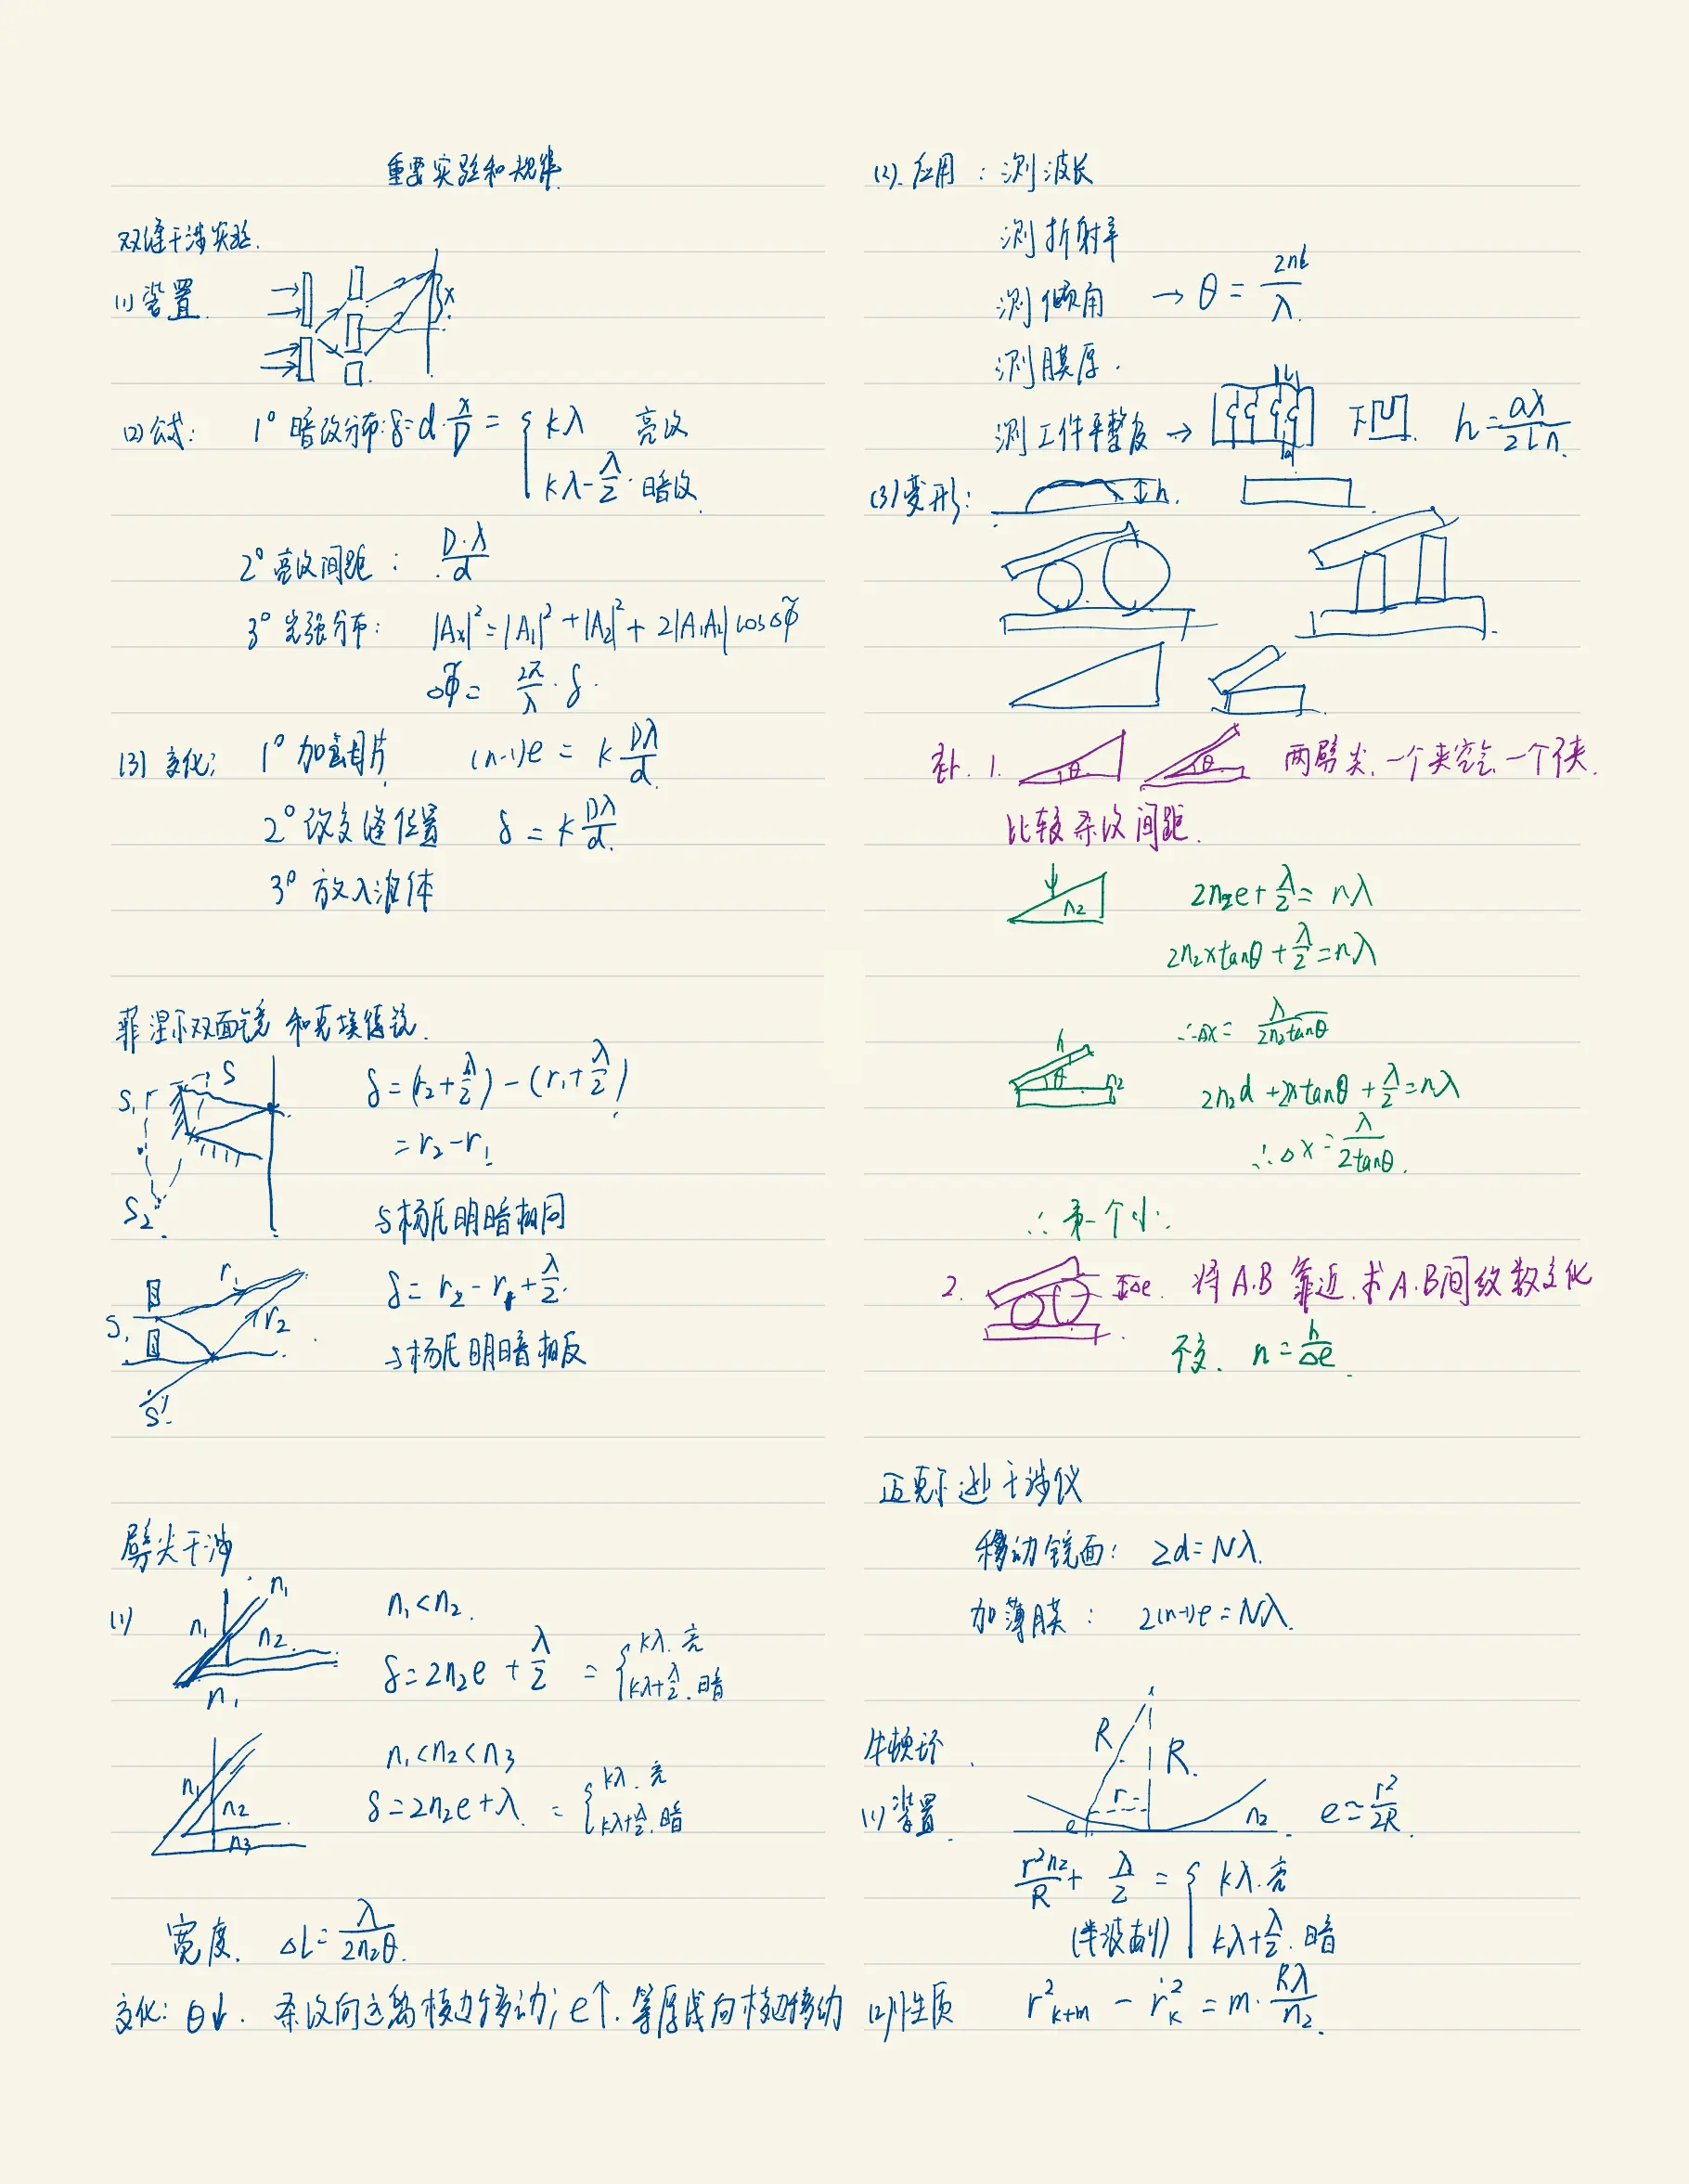 重要实验和规律
双缝干涉实验.
(1) 装置.
x
(2) 公式: 1° 暗纹分布: δ = d·x/D = { kλ 亮纹
kλ - λ/2 · 暗纹.
2° 亮纹间距: D·λ/d
3° 光强分布: |Ax|² = |A₁|² + |A₂|² + 2|A₁A₂| cosΔφ̃
Δφ̃ = 2π/λ · δ.
(3) 变化: 1° 加盖片 (n-1)e = k Dλ/d.
2° 改变缝位置 δ = k Dλ/d.
3° 放入液体
菲涅尔双面镜和克埃镜.
S
S₁ r
S₂
δ = (r₂ + λ/2) - (r₁ + λ/2)
= r₂ - r₁
与杨氏明暗相同
S₁ r₁ r₂
S'
δ = r₂ - r₁ + λ/2.
与杨氏明暗相反
劈尖干涉.
(1) n₁ n₁ n₂ n₁
n₁ < n₂.
δ = 2n₂e + λ/2 = { kλ. 亮
kλ + λ/2. 暗
n₁ n₂ n₃
n₁ < n₂ < n₃
δ = 2n₂e + λ = { kλ. 亮
kλ + λ/2. 暗
宽度. ΔL = λ/2n₂θ.
变化: θ↓. 条纹向远离棱边移动; e↑. 等厚线向棱边移动
(2). 应用: 测波长
测折射率
测倾角 → θ = 2nL/λ.
测膜厚.
测工件平整度 → L a 下凹 h = aλ/2Ln.
(3) 变形: h.
补. 1. θ θ 两劈尖, 一个夹空气, 一个不夹.
比较条纹间距.
n₂ 2n₂e + λ/2 = nλ
2n₂xtanθ + λ/2 = nλ
∴Δx = λ/2n₂tanθ
θ n₂ 2n₂d + 2xtanθ + λ/2 = nλ
∴Δx = λ/2tanθ.
∴ 第一个小.
2. Δe. 将A.B靠近, 求A.B间纹数变化
不变. n = h/Δe.
迈克尔逊干涉仪
移动镜面: 2d = Nλ.
加薄膜: 2(n-1)e = Nλ.
牛顿环.
(1) 装置. R R. r e n₂ e ≃ r²/2R.
r²n₂/R + λ/2 = { kλ. 亮
(半波面) kλ + λ/2. 暗
(2) 性质 r²ₖ₊ₘ - r²ₖ = m · Rλ/n₂.